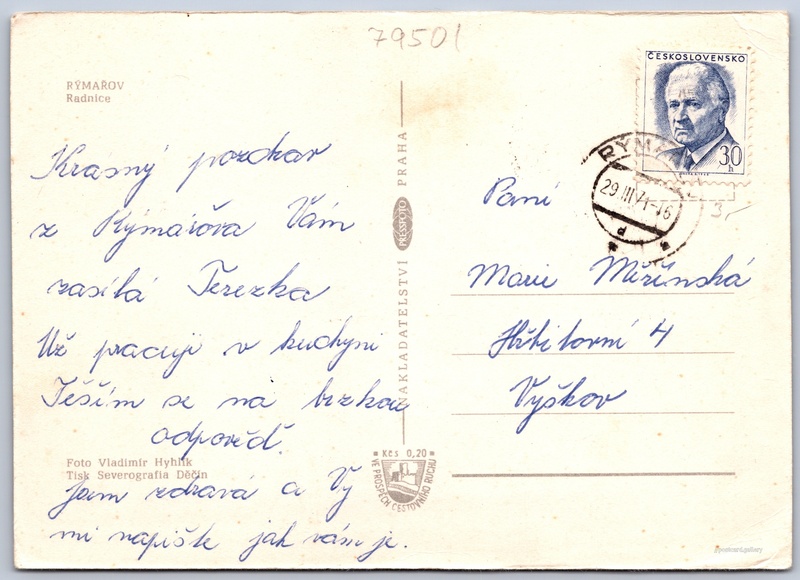 79501
RÝMAŘOV
Radnice
Krasný pozdrav
z Rýmařova Vám
zasílá Terezka
Už pracuji v kuchyni
Těším se na brzkou
odpověď.
Foto Vladimír Hyhlík
Tisk Severografia Děčín
Jsem zdravá a Vy
mi napište jak vám je.
NAKLADATELSTVÍ PRESSFOTO PRAHA
Kčs 0,20
VE PROSPĚCH CESTOVNÍHO RUCHU
ČESKOSLOVENSKO
30
h
RÝMAŘOV
29.III.71-16
d
3,-
Paní
Marie Měřínská
Hřbitovní 4
Vyškov
postcard.gallery